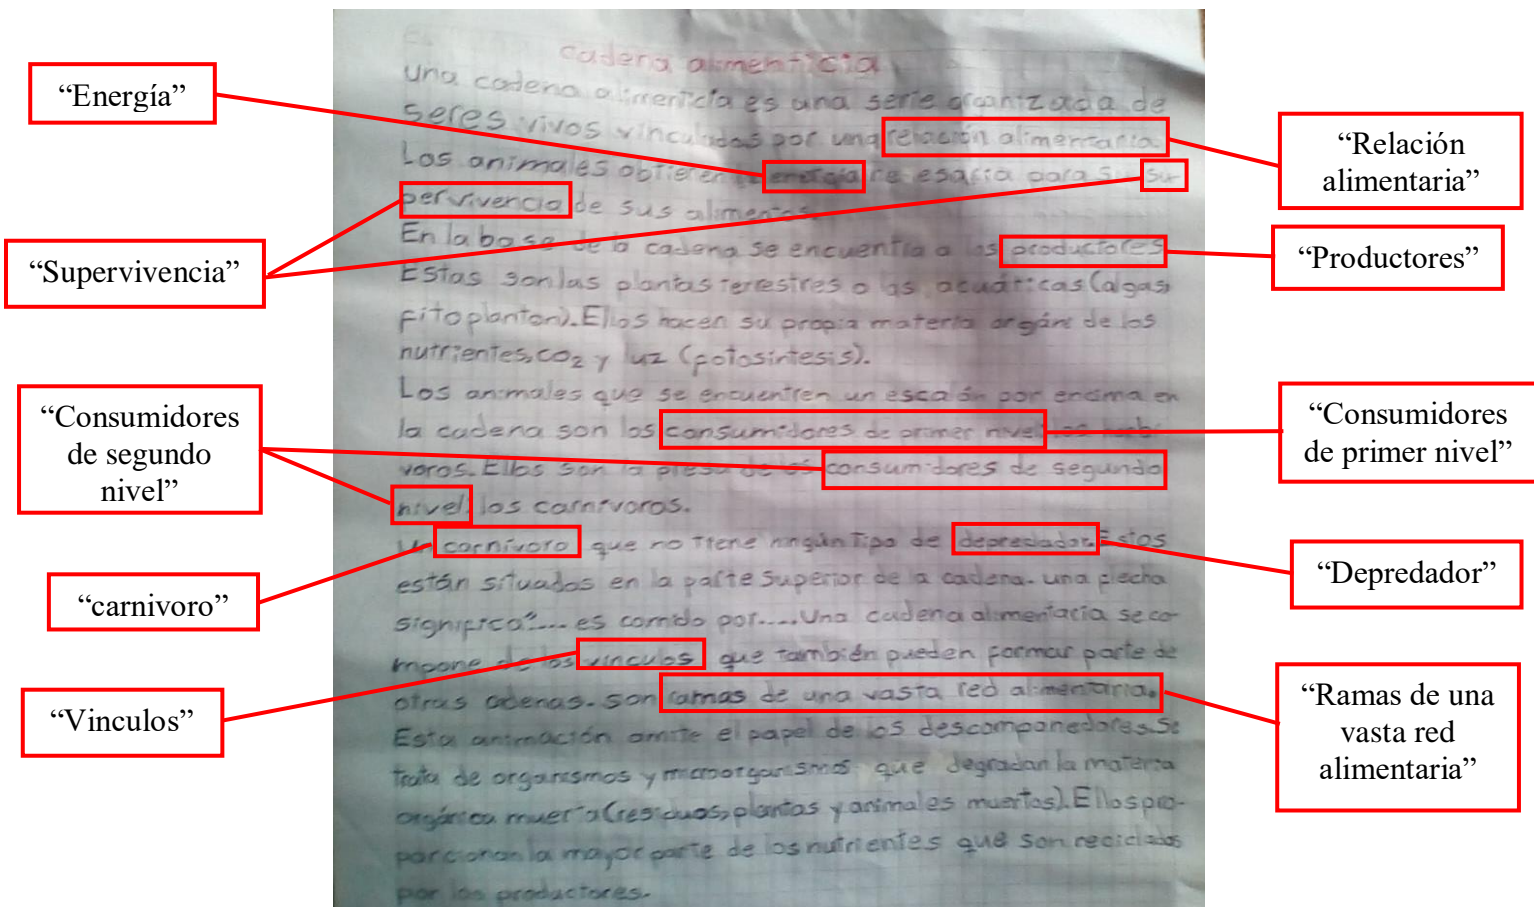 cadena alimenticia
una cadena alimenticia es una serie organizada de
seres vivos vinculados por una relación alimentaria.
Los animales obtienen energía nesesaria para su su-
pervivencia de sus alimentos.
En la base de la cadena se encuentra a los productores
Estas son las plantas terrestres o las acuáticas (algas,
fitoplanton). Ellos hacen su propia materia orgáni de los
nutrientes, co₂ y luz (fotosintesis).
Los animales que se encuentren un escalón por encima en
la cadena son los consumidores de primer nivel: los herbi
voros. Ellos son la presa de los consumidores de segundo
nivel: los carnívoros.
Un carnívoro que no tiene ningún tipo de depredador. Estos
están situados en la parte superior de la cadena. una flecha
significa "... es comido por.... Una cadena alimentacia se co-
mpone de los vinculos que también pueden formar parte de
otras cadenas. son ramas de una vasta red alimentaria.
Esta animación omite el papel de los descomponedores. Se
trata de organismos y microorganismos, que degradan la materia
orgánica muerta (residuos, plantas y animales muertos). Ellos pro-
porcionan la mayor parte de los nutrientes que son reciclados
por los productores.
“Energía”
“Supervivencia”
“Consumidores
de segundo
nivel”
“carnivoro”
“Vinculos”
“Relación
alimentaria”
“Productores”
“Consumidores
de primer nivel”
“Depredador”
“Ramas de una
vasta red
alimentaria”